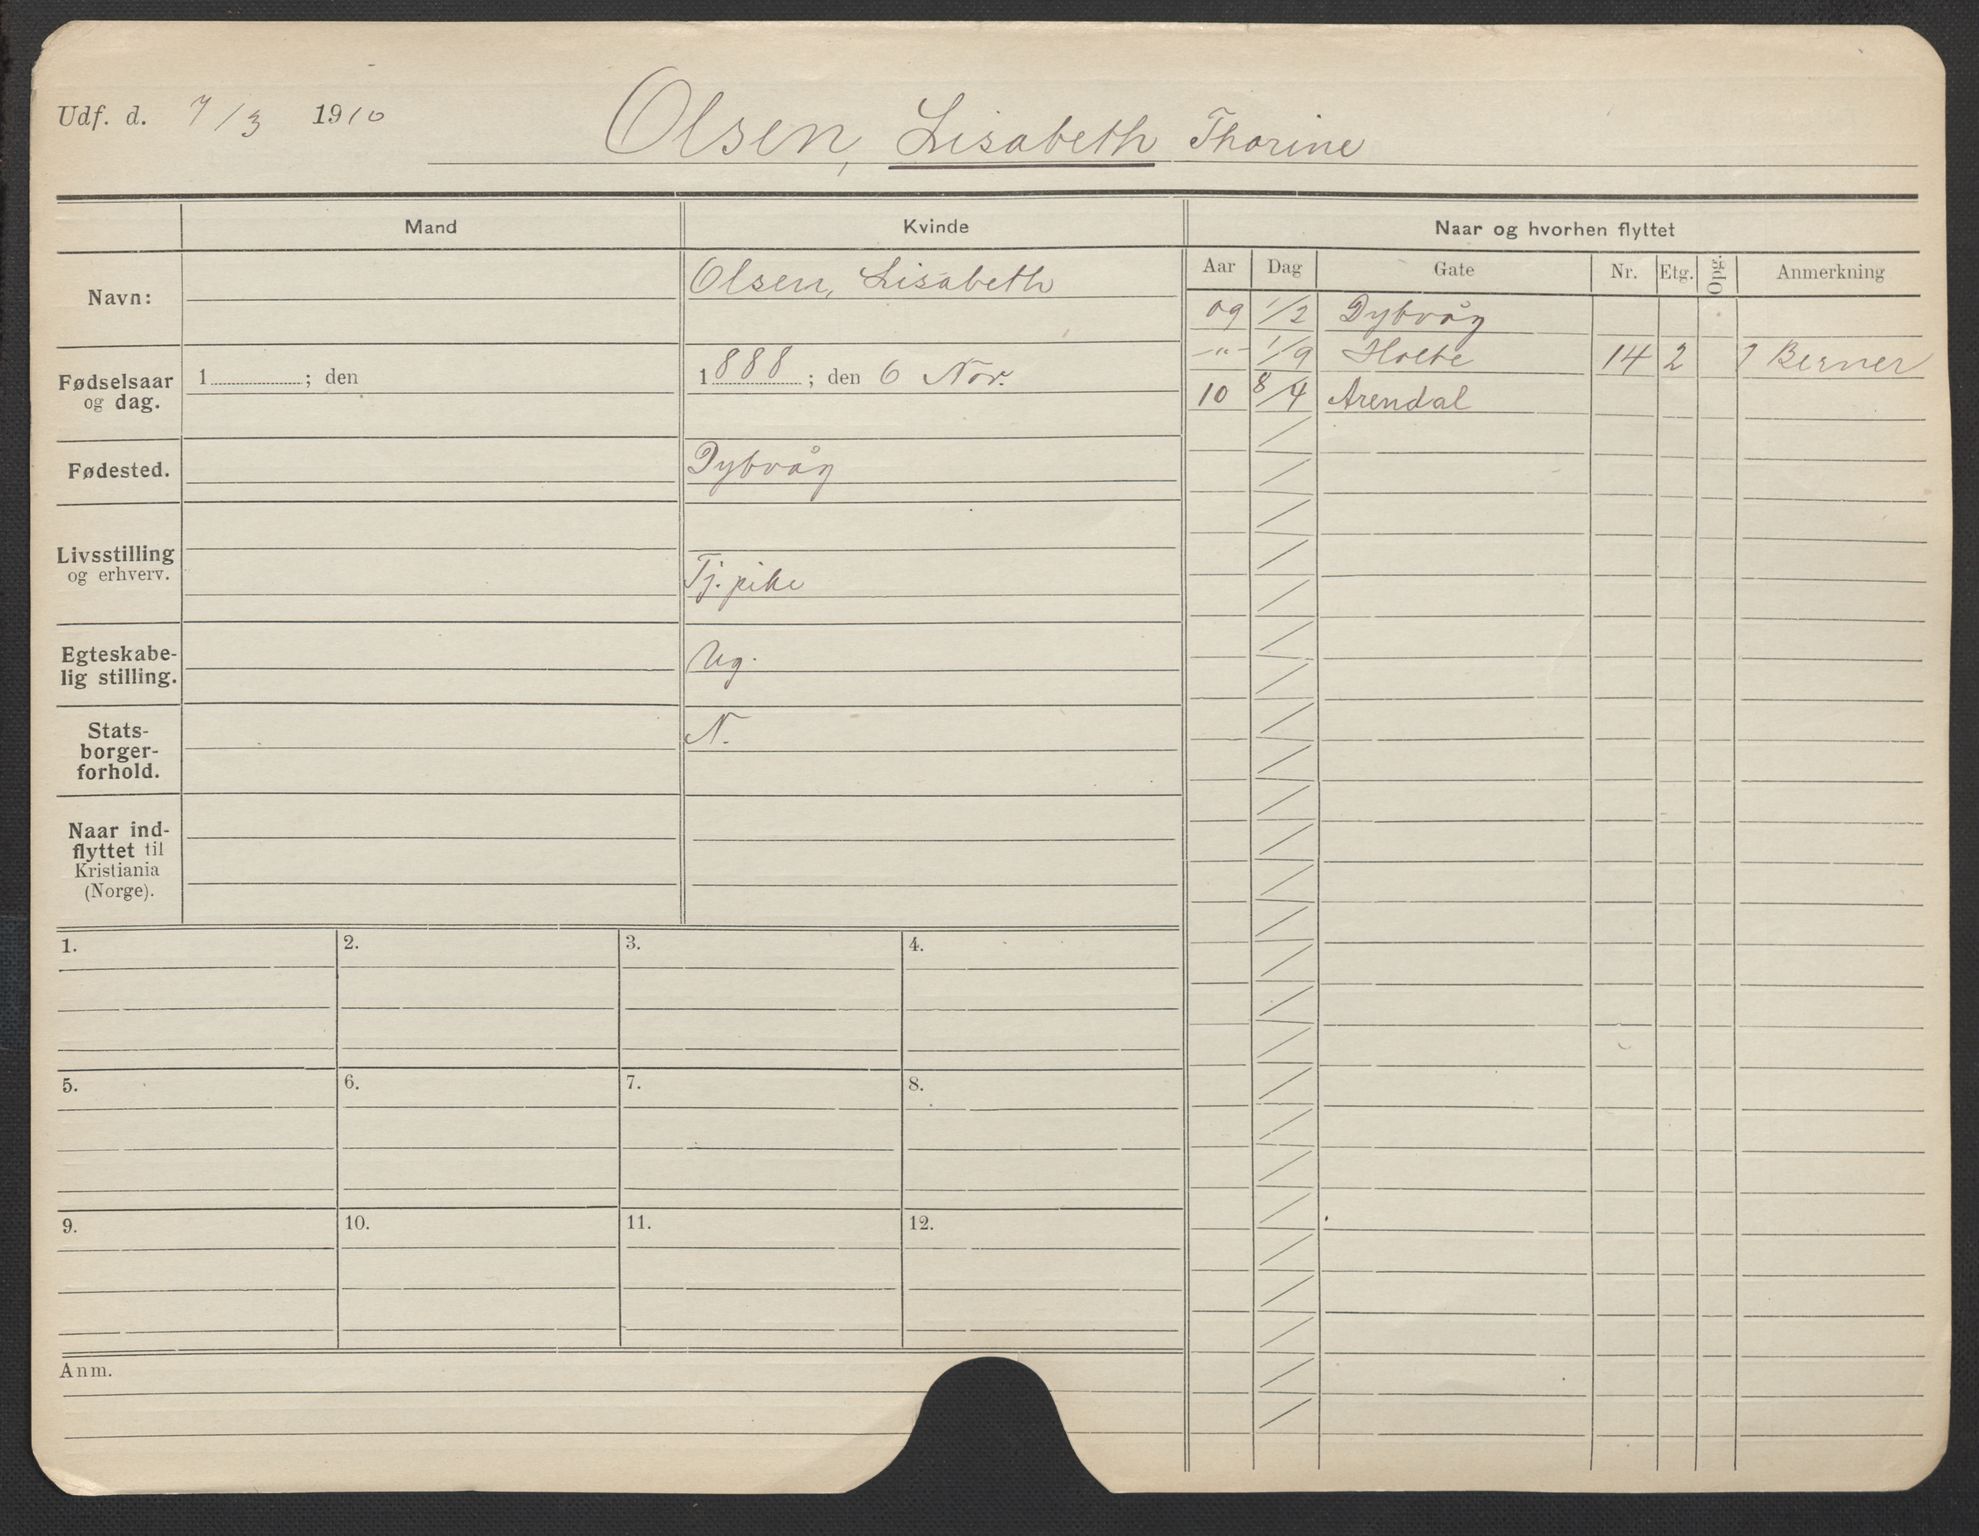 Udf. d. 7/3 1910
Olsen, Lisabeth Thorine
Mand Kvinde Naar og hvorhen flyttet
Aar Dag Gate Nr. Etg. Opg. Anmerkning
Navn: Olsen, Lisabeth
09 1/2 Dybvåg
-"- 1/9 Holte 14 2 Berner
10 8/4 Arendal
Fødselsaar
og dag.
1 ; den
1888 ; den 6 Nov.
Fødested. Dybvåg
Livsstilling
og erhverv.
Tj. pike
Egteskabe-
lig stilling.
Ug.
Stats-
borger-
forhold.
N.
Naar ind-
flyttet til
Kristiania
(Norge).
1. 2. 3. 4.
5. 6. 7. 8.
9. 10. 11. 12.
Anm.